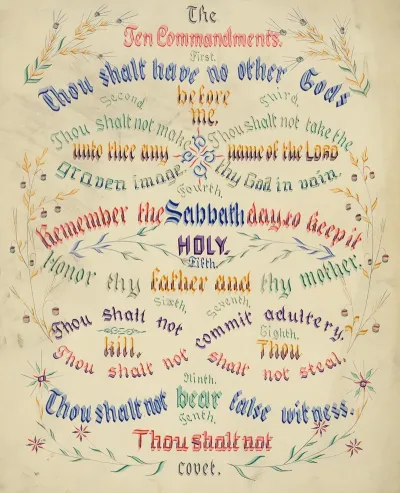 The
Ten Commandments.
First.
Thou shalt have no other Gods
before
me.
Second.
Thou shalt not make
unto thee any
graven image.
Third.
Thou shalt not take the
name of the LORD
thy God in vain.
Fourth.
Remember the Sabbath day to keep it
HOLY.
Fifth.
Honor thy father and thy mother.
Sixth.
Thou shalt not
kill.
Seventh.
Thou shalt not commit adultery.
Eighth.
Thou
shalt not steal.
Ninth.
Thou shalt not bear false witness.
Tenth.
Thou shalt not
covet.